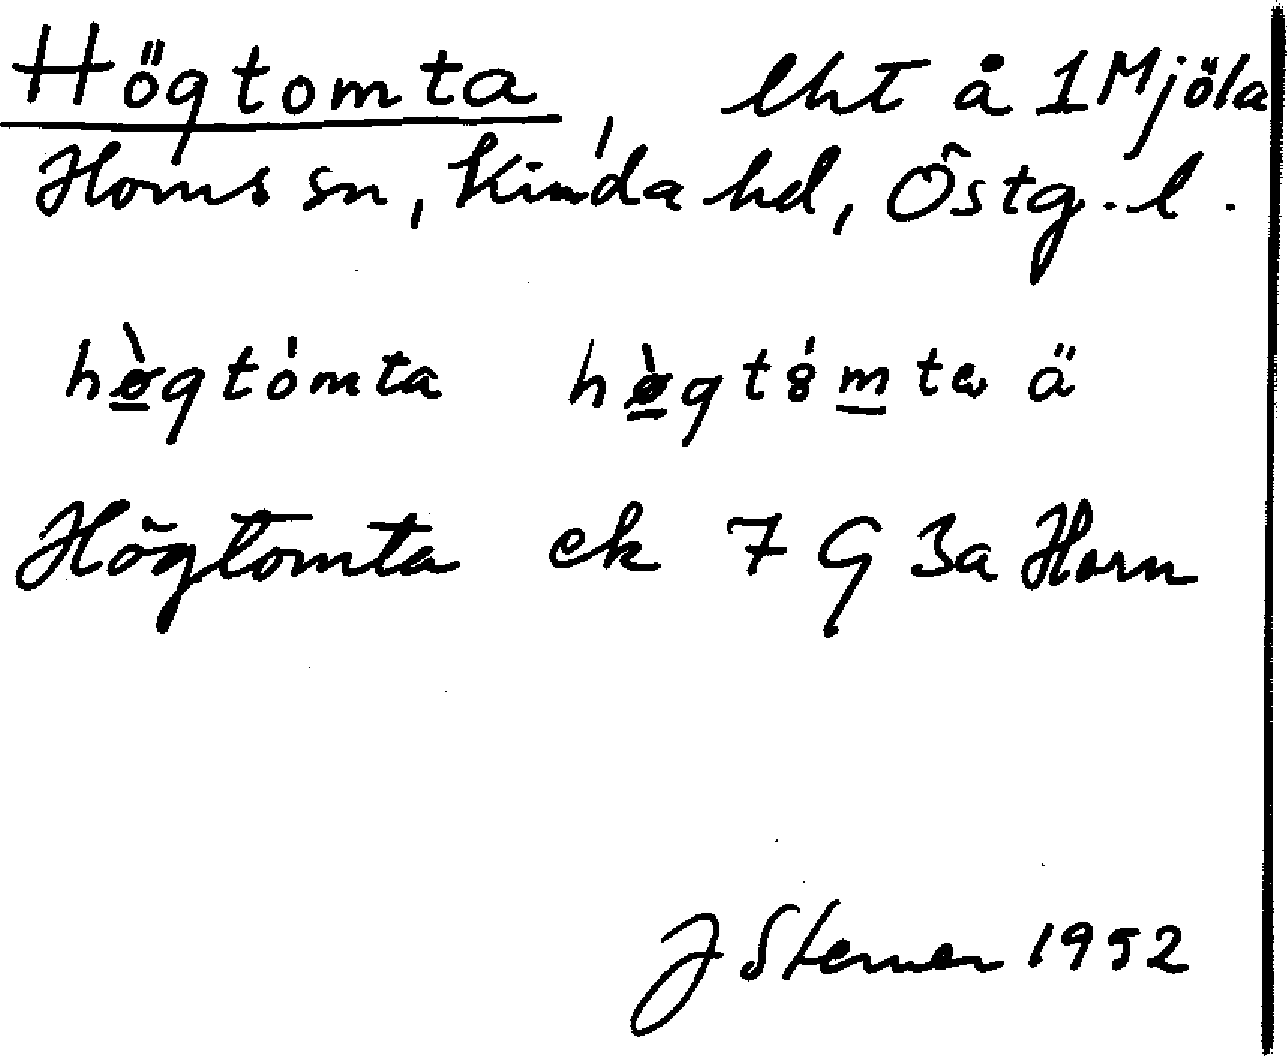 Högtomta, lht å 1 Mjöla
Horns sn, Kinda hd, Östg. l.
hø̀gtómta hø̀gtómta ä
Högtomta ek 7 G 3a Horn
J Sterner 1952